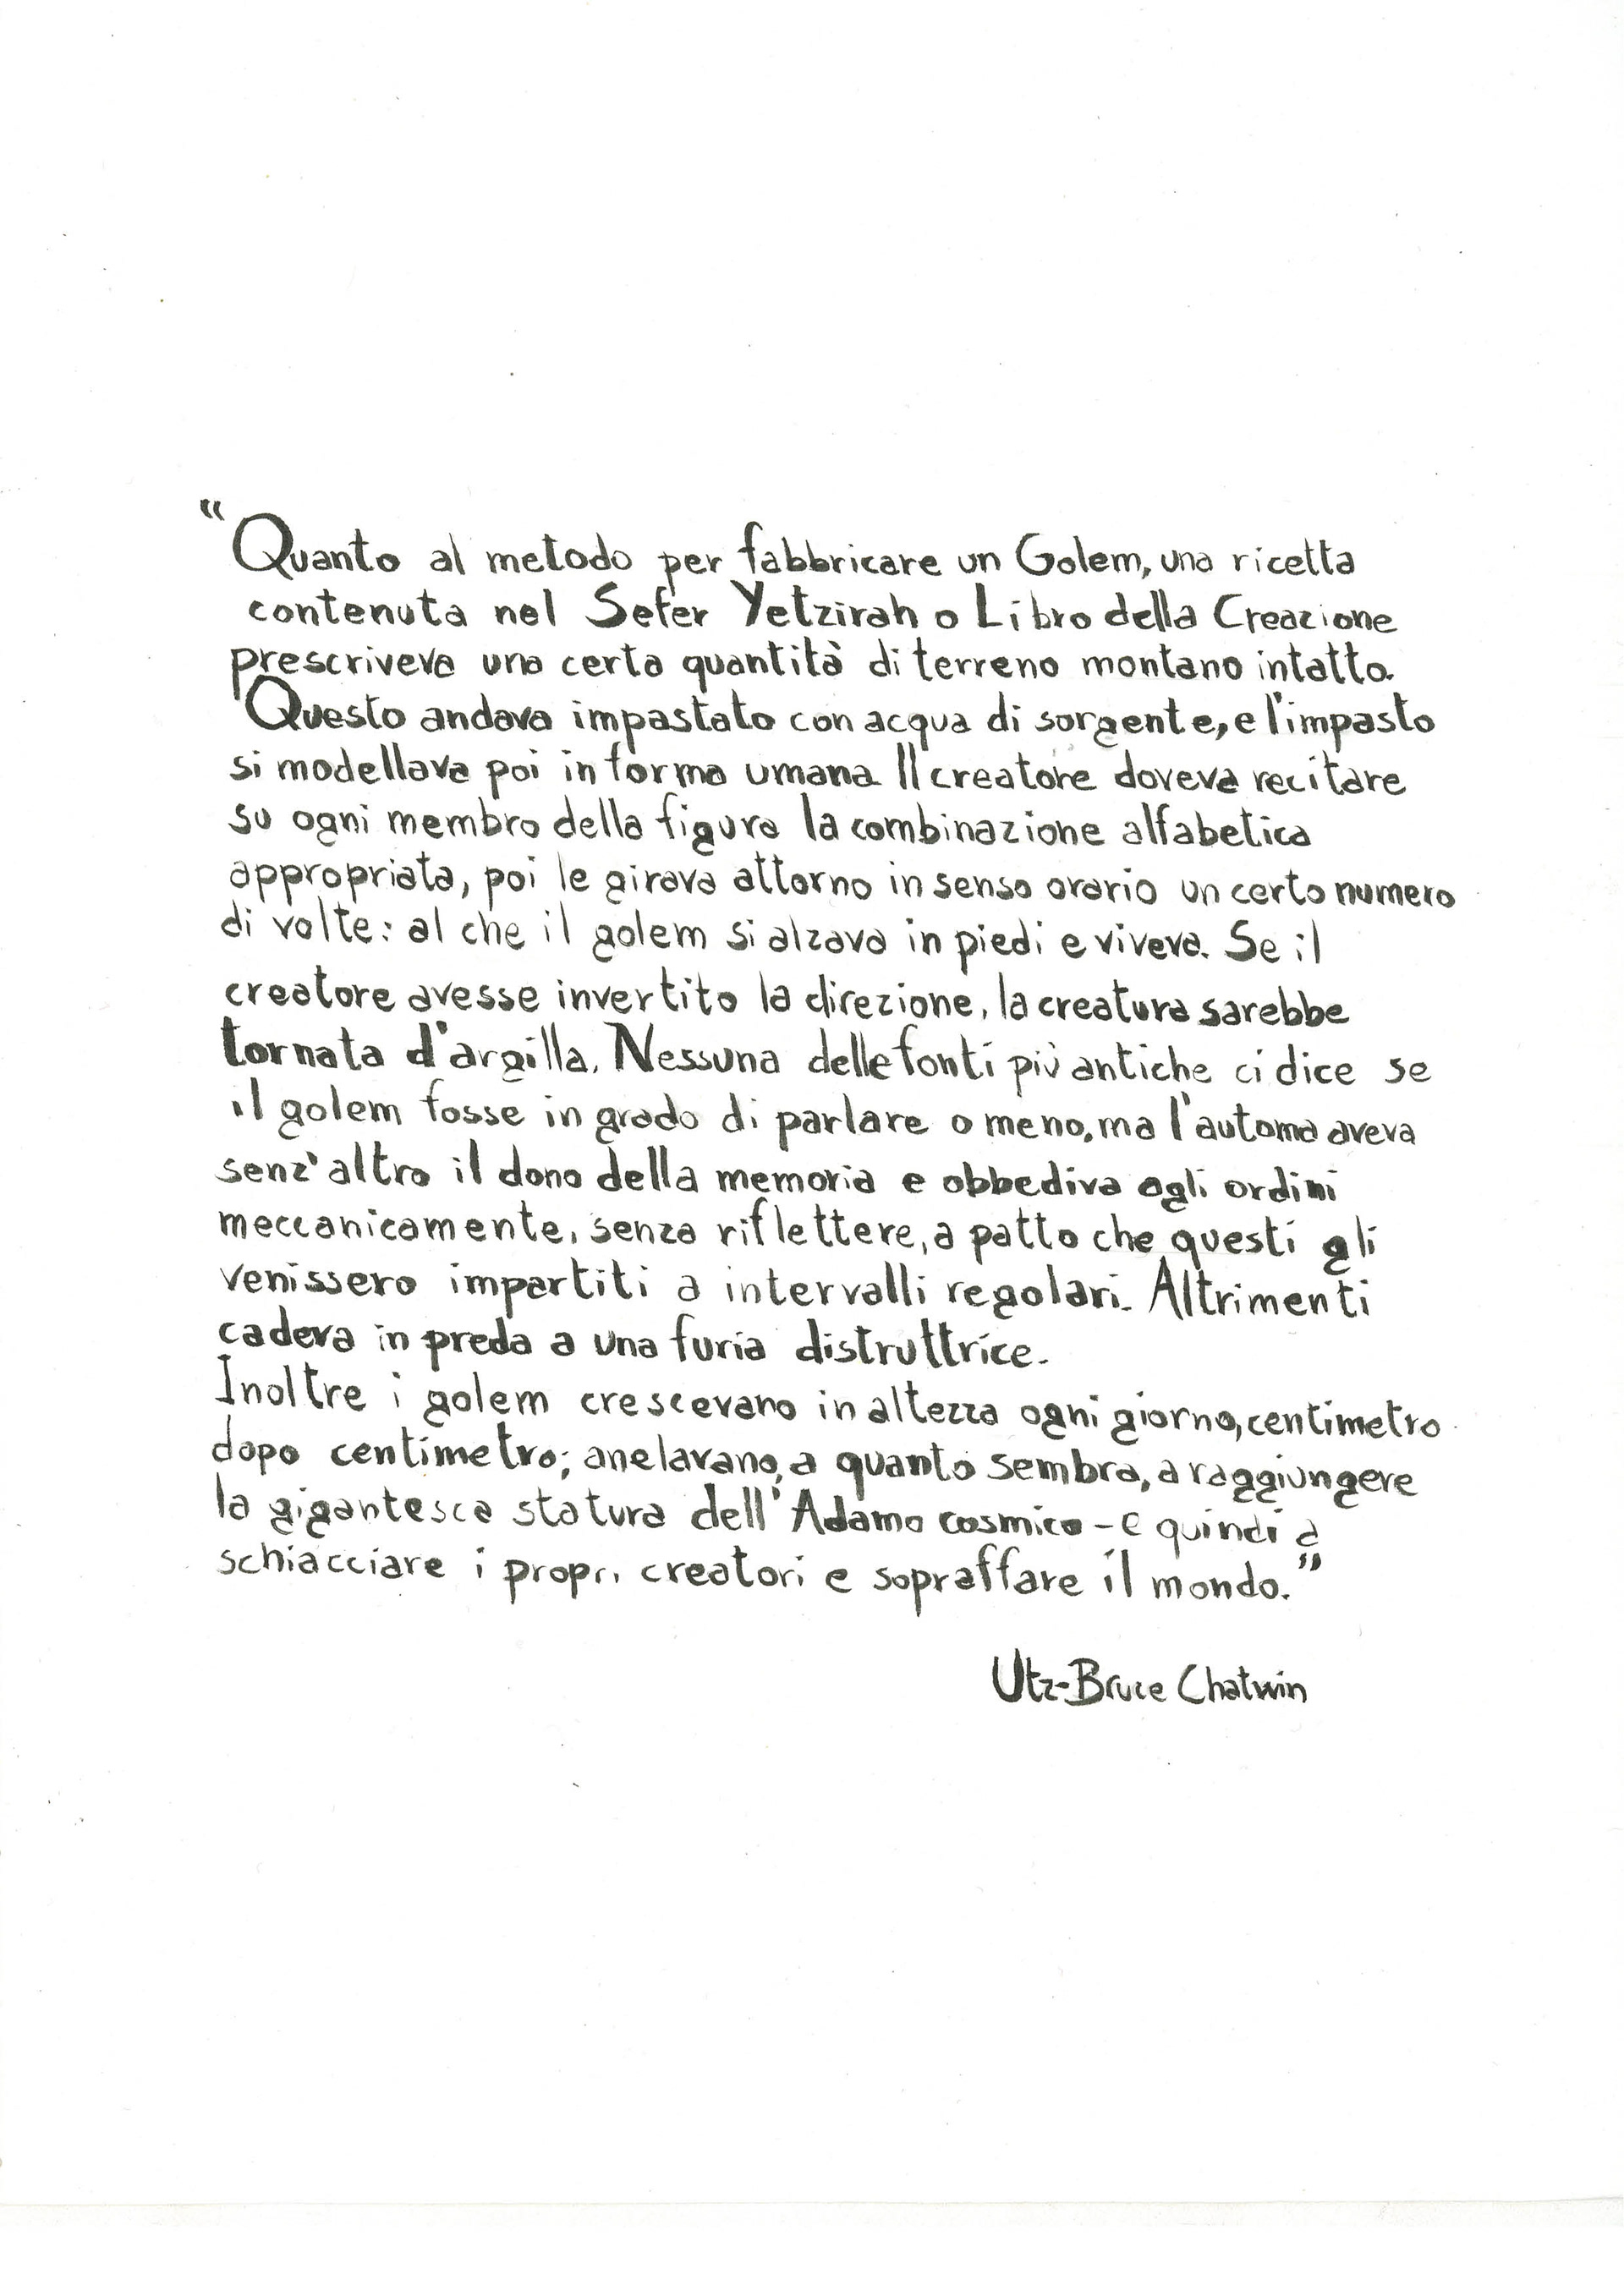 “Quanto al metodo per fabbricare un Golem, una ricetta
contenuta nel Sefer Yetzirah o Libro della Creazione
prescriveva una certa quantità di terreno montano intatto.
Questo andava impastato con acqua di sorgente, e l'impasto
si modellava poi in forma umana Il creatore doveva recitare
su ogni membro della figura la combinazione alfabetica
appropriata, poi le girava attorno in senso orario un certo numero
di volte: al che il golem si alzava in piedi e viveva. Se il
creatore avesse invertito la direzione, la creatura sarebbe
tornata d'argilla. Nessuna delle fonti più antiche ci dice se
il golem fosse in grado di parlare o meno, ma l'automa aveva
senz'altro il dono della memoria e obbediva agli ordini
meccanicamente, senza riflettere, a patto che questi gli
venissero impartiti a intervalli regolari. Altrimenti
cadeva in preda a una furia distruttrice.
Inoltre i golem crescevano in altezza ogni giorno, centimetro
dopo centimetro; anelavano, a quanto sembra, a raggiungere
la gigantesca statura dell'Adamo cosmico - e quindi a
schiacciare i propri creatori e sopraffare il mondo.”
Utz-Bruce Chatwin